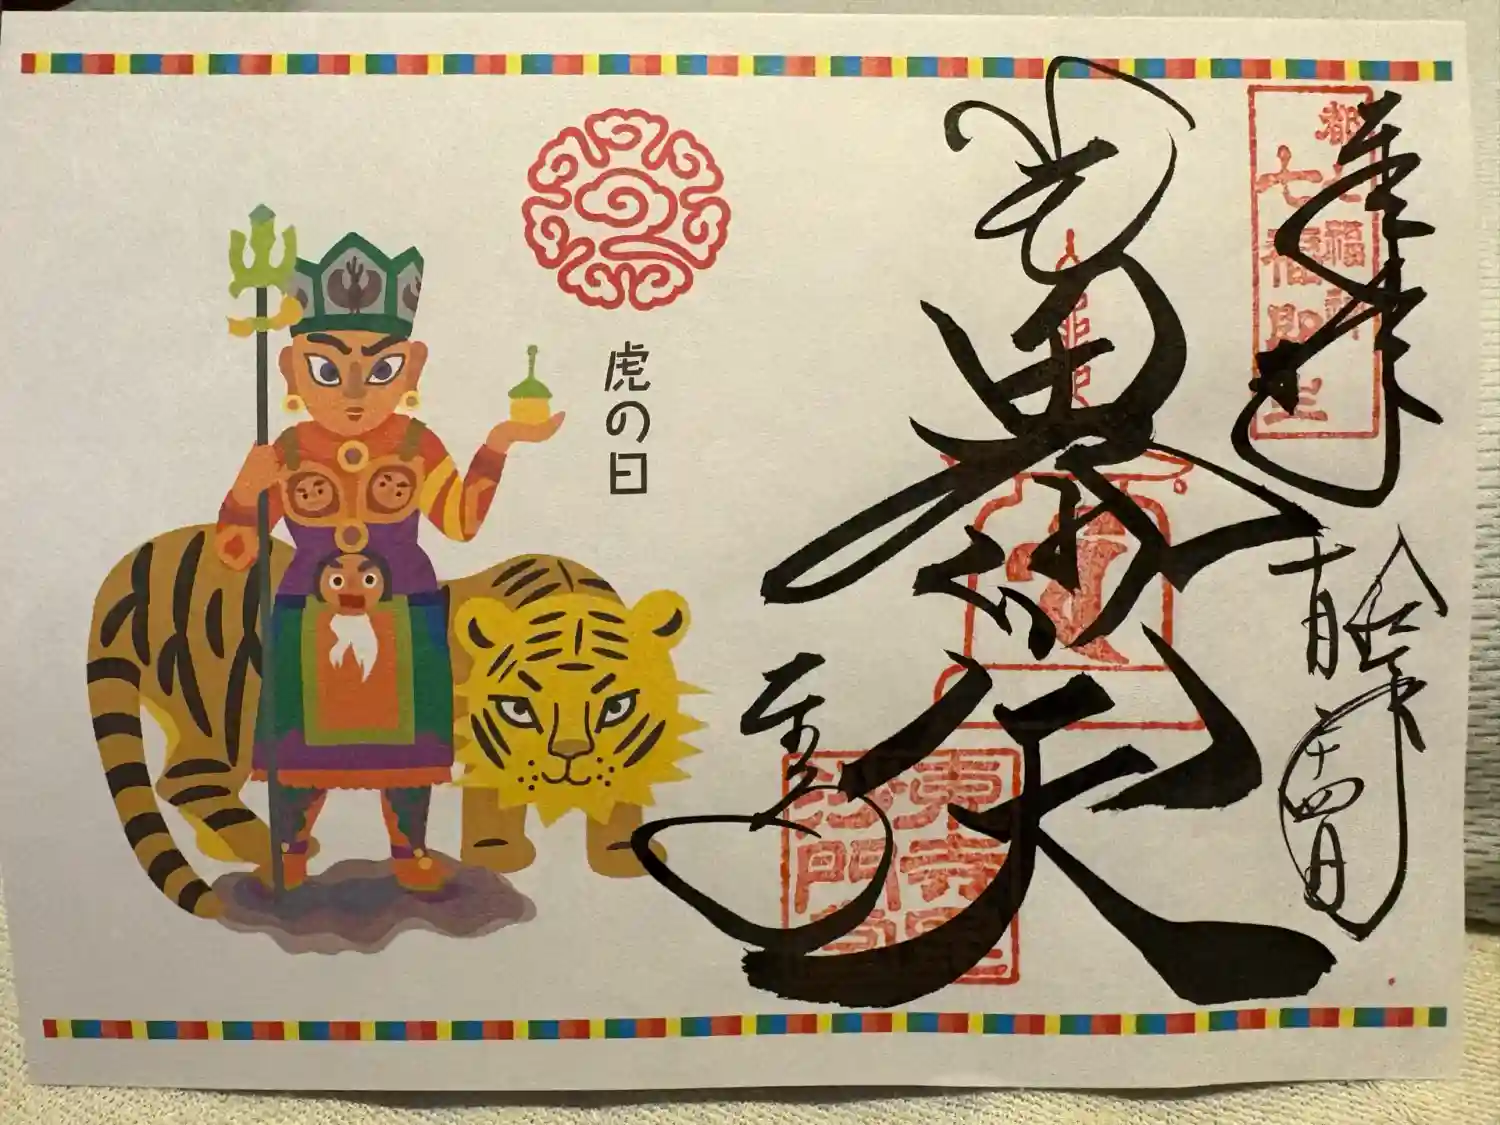 虎の日
奉拝
令和六年
十月十四日
都七福神
七福即生
毘沙門天
東寺
東寺毘
沙門堂